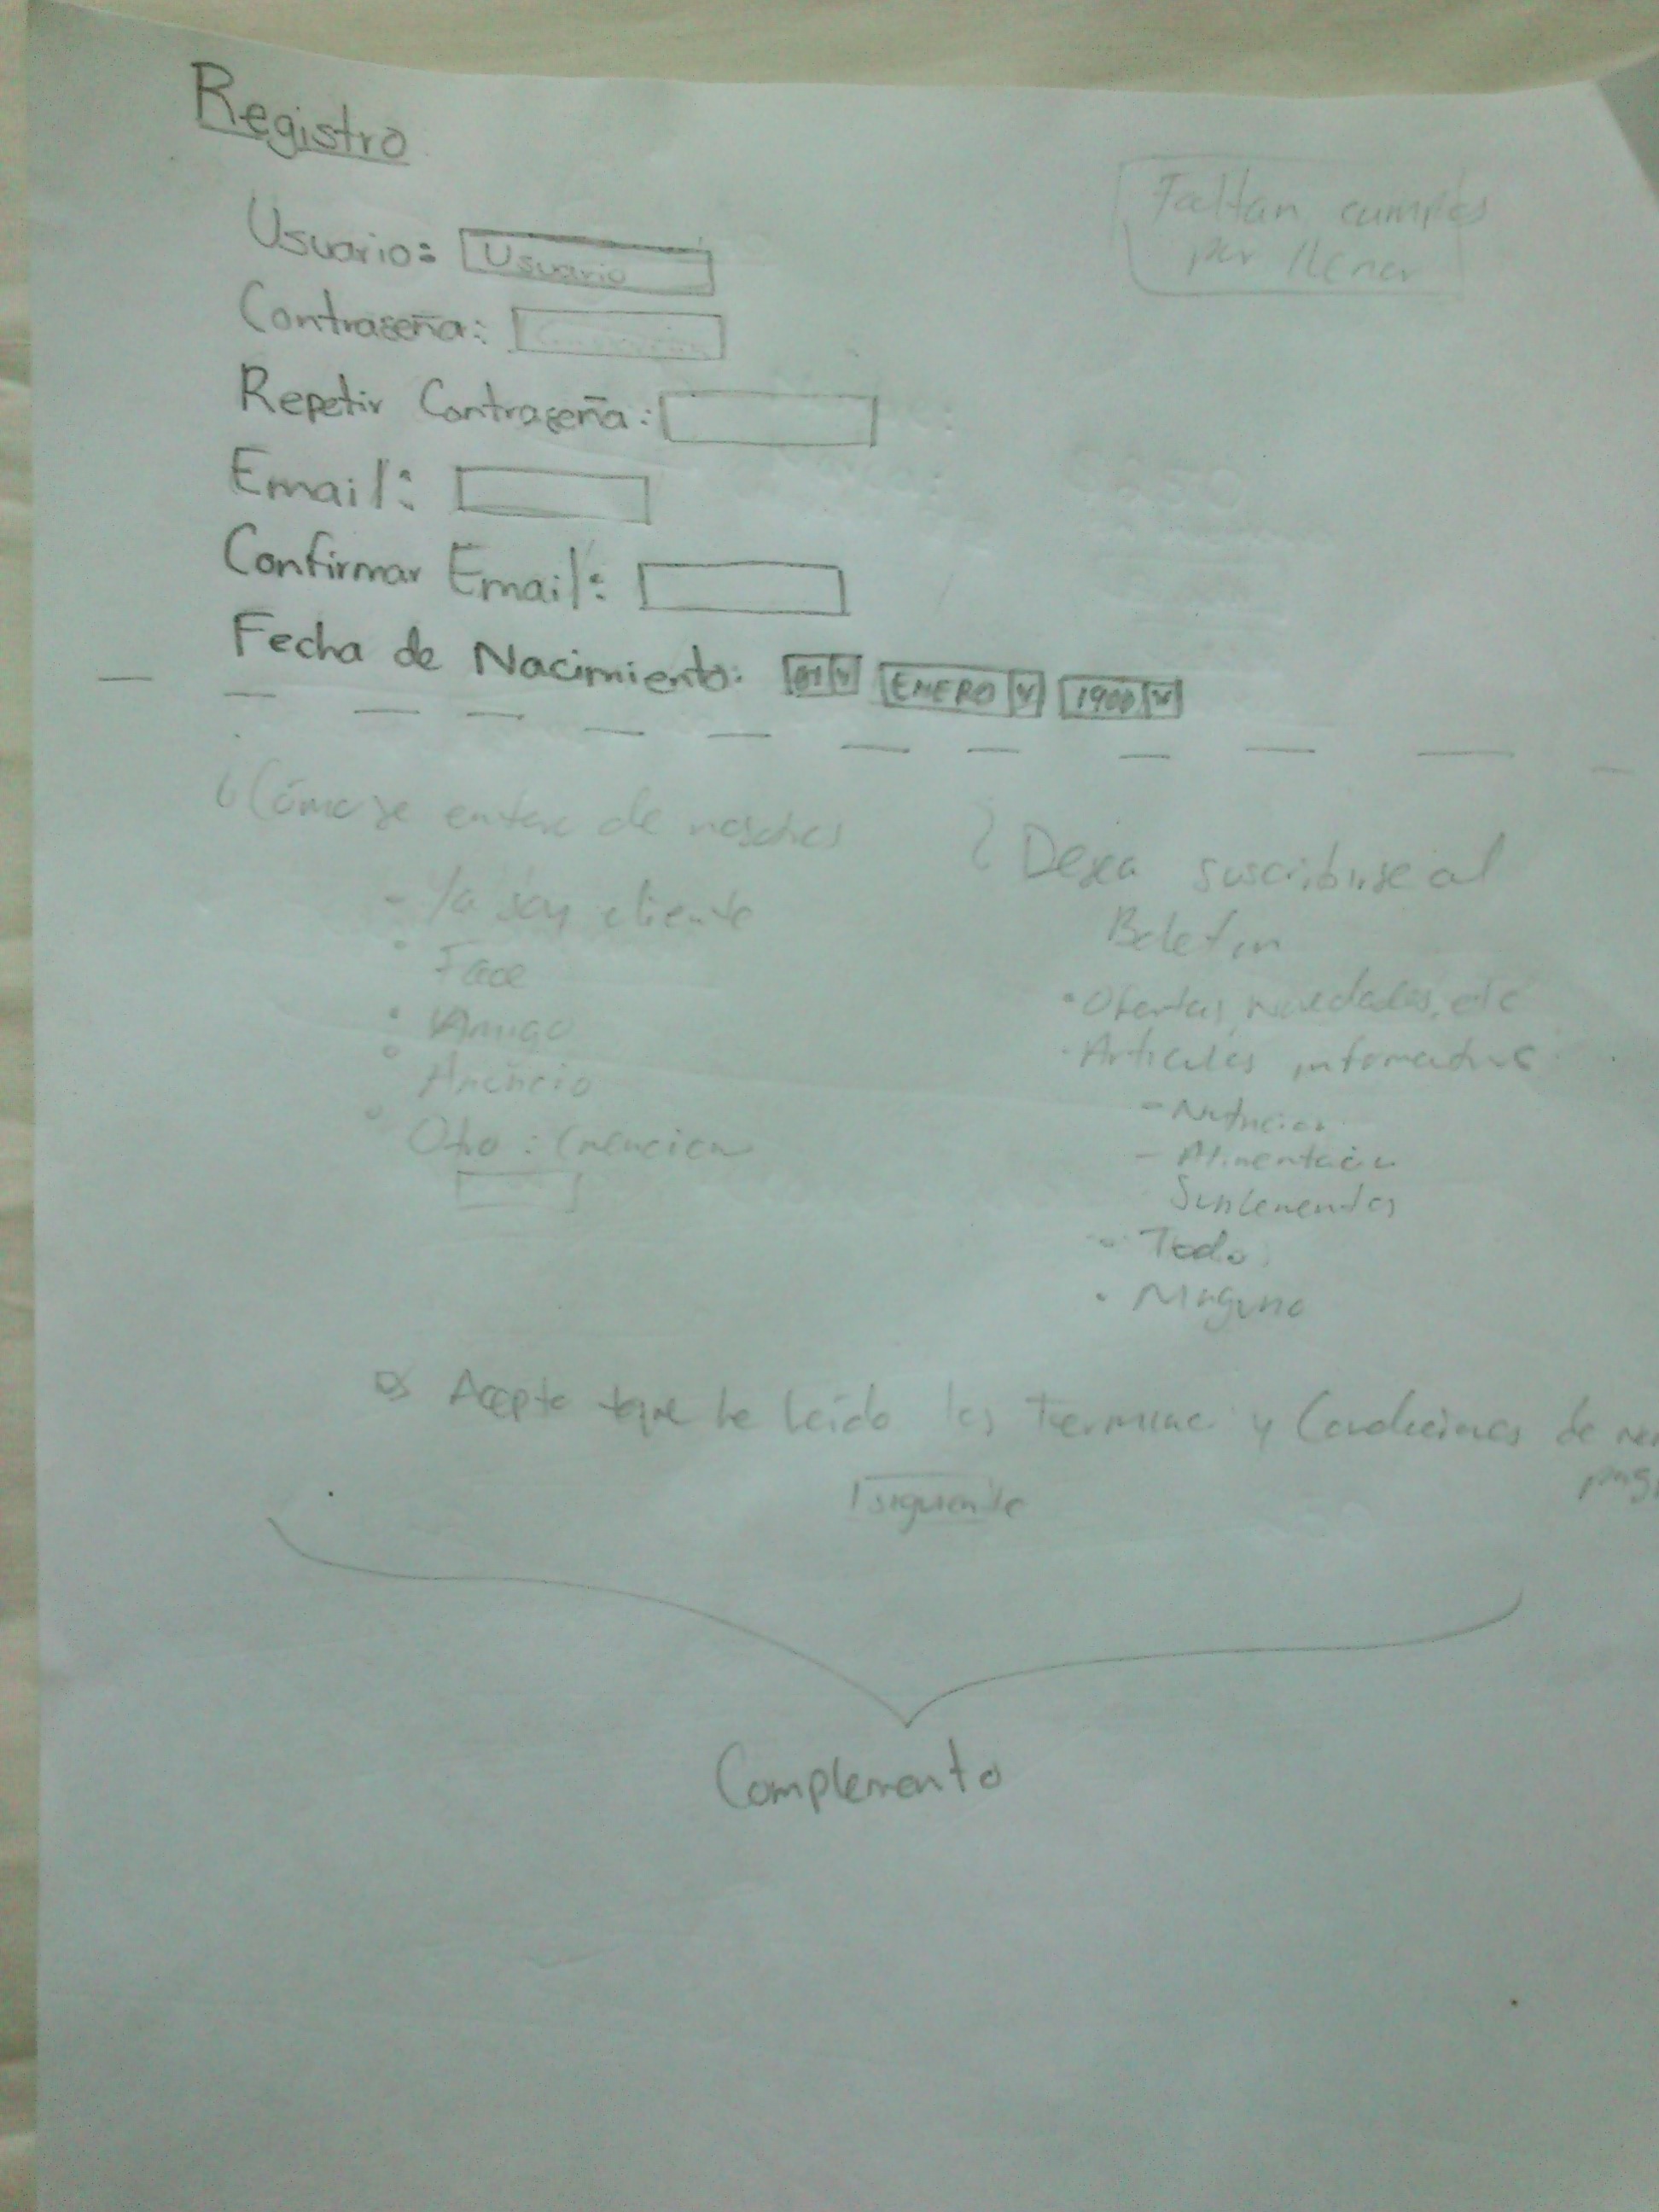 Registro
Faltan cumplos
por llenar
Usuario: Usuario
Contraseña:
Repetir Contraseña:
Email:
Confirmar Email:
Fecha de Nacimiento: 01 ENERO 1900
¿Cómo se entero de nosotros
- Ya soy cliente
Face
Amigo
Anuncio
Otro:
¿Desea suscribirse al
Boletin
• Ofertas, Novedades, etc
• Articulos informativos
- Nutricion
- Alimentacion
Suplementos
• Todo
• Ninguno
Acepto que he leido los Termino y Condiciones de
siguiente
Complemento